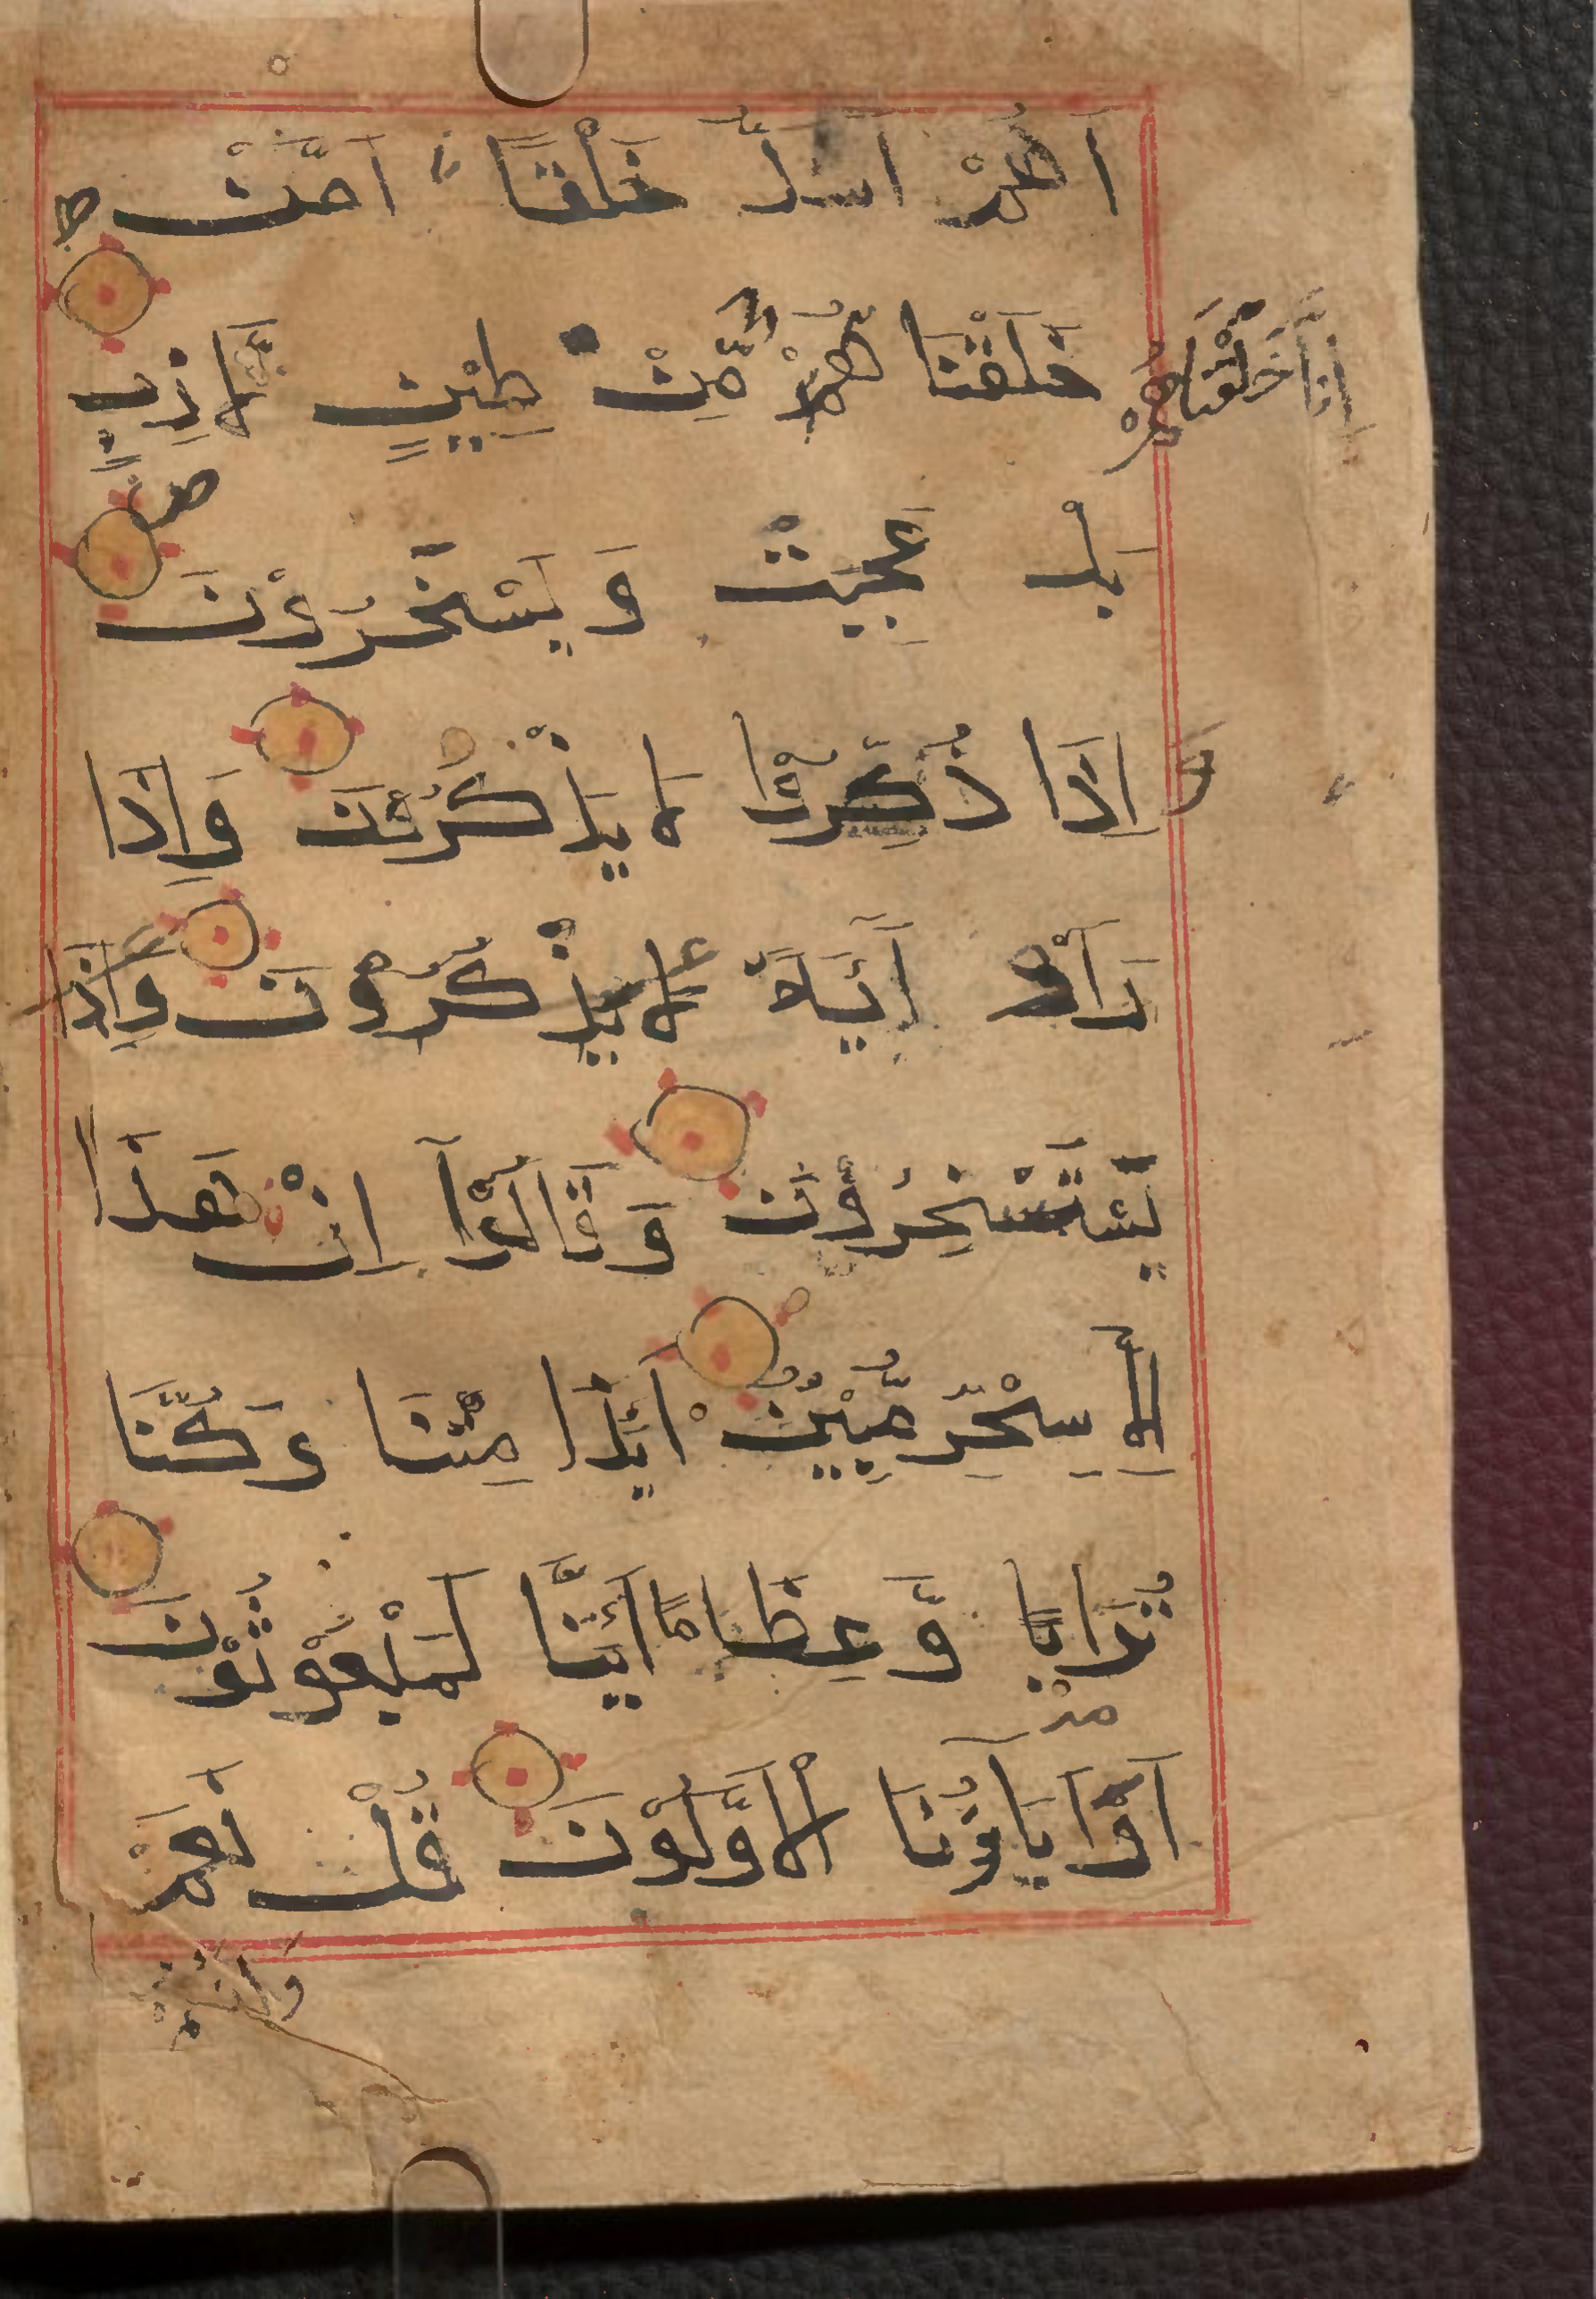 اَهُمْ اَشَدُّ خَلْقًا اَمَّنْ ط
اِنَّا خَلَقْنَاهُمْ
خَلَقْنَا هُمْ مِّنْ طِيْنٍ لَّا زِبٍ
بَلْ عَجِبْتَ وَ يَسْخَرُوْنَ ص
وَ اِذَا ذُكِّرُوْا لَا يَذْكُرُوْنَ وَاِذَا
رَاَوْ اٰيَةً لَا يَذْكُرُوْنَ وَاِذَا
يَّسْتَسْخِرُوْنَ وَ قَالُوْٓا اِنْ هَذَا
اِلَّا سِحْرٌ مُّبِيْنٌ اَيِٕذَا مِتْنَا وَ كُنَّا
تُرَابًا وَّ عِظَامًا اَئِنَّا لَمَبْعُوْثُوْنَ
اَوَاٰبَاؤُنَا الْاَوَّلُوْنَ قُلْ نَعَمْ
وَاَنْتُمْ